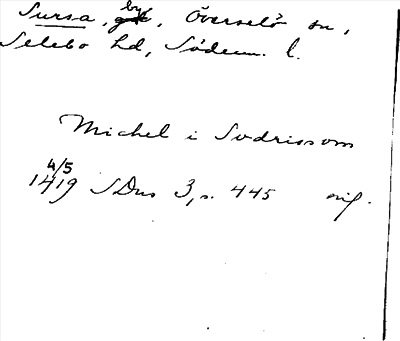 Sursa, by, Överselö sn,
Selebo hd, Söderm. l.
Michel i Sudrissom
4/5
1419 SDns 3, s. 445 orig.